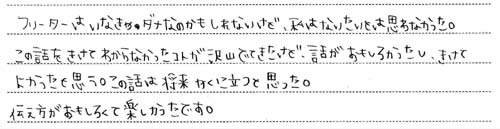 フリーターはいなきゃダメなのかもしれないけど、私はなりたいとは思わなかった。
この話をきいてわからなかったコトが沢山でてきたけど、話がおもしろかったし、きけて
よかったと思う。この話は将来役に立つと思った。
伝え方がおもしろくて楽しかったです。